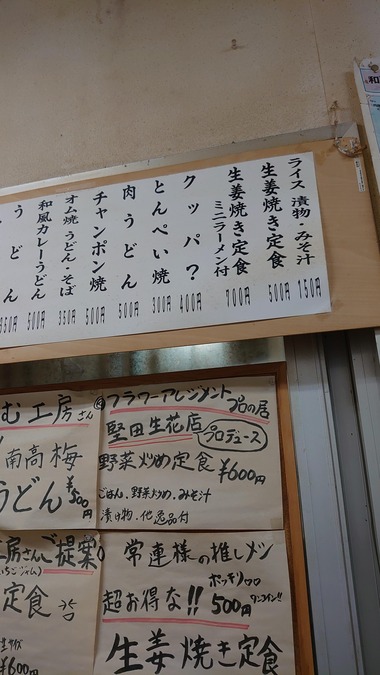 和
ライス 漬物・みそ汁 150円
生姜焼き定食 500円
生姜焼き定食 ミニラーメン付 700円
クッパ? 400円
とんぺい焼 300円
肉うどん 500円
チャンポン焼 500円
和風カレーうどん 500円
オム焼 うどん・そば 350円
うどん 350円
フラワーアレジメント
プロの店
堅田生花店 プロデュース
野菜炒め定食 ¥600円
ごはん、野菜炒め、みそ汁
漬け物、他逸品付
む工房さん
南高梅
うどん ¥500円
常連様の推しメシ
ポッキリ
超お得な!! 500円 ワンコイン!!
生姜焼き定食
工房さんご提案
定食
¥600円